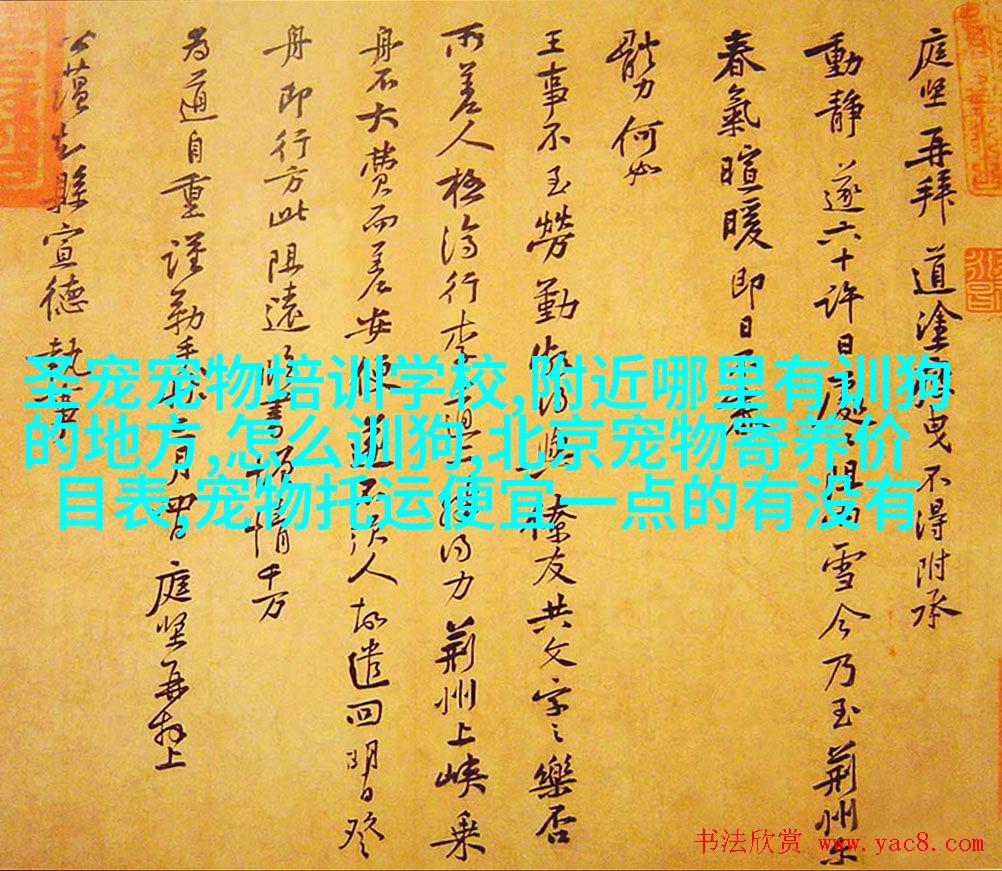 庭坚再拜 道塗曳不得附承
動静 遂六十许日雪今乃至荆州
春氣暄暖即日
體力何如
王事不至勞勤友共文字之樂否
所差人极济行李得力荆州上峡乘
舟不大费而差安便人故遣回明日登
舟即行方此阻遠书情千万
为道自重谨勒月庭坚再拜上
公蕴知縣宣德執事
圣宠宠物培训学校,附近哪里有训狗
的地方,怎么训狗,北京宠物寄养价
目表,宠物托运便宜一点的有没有
书法欣赏 www.yac8.com